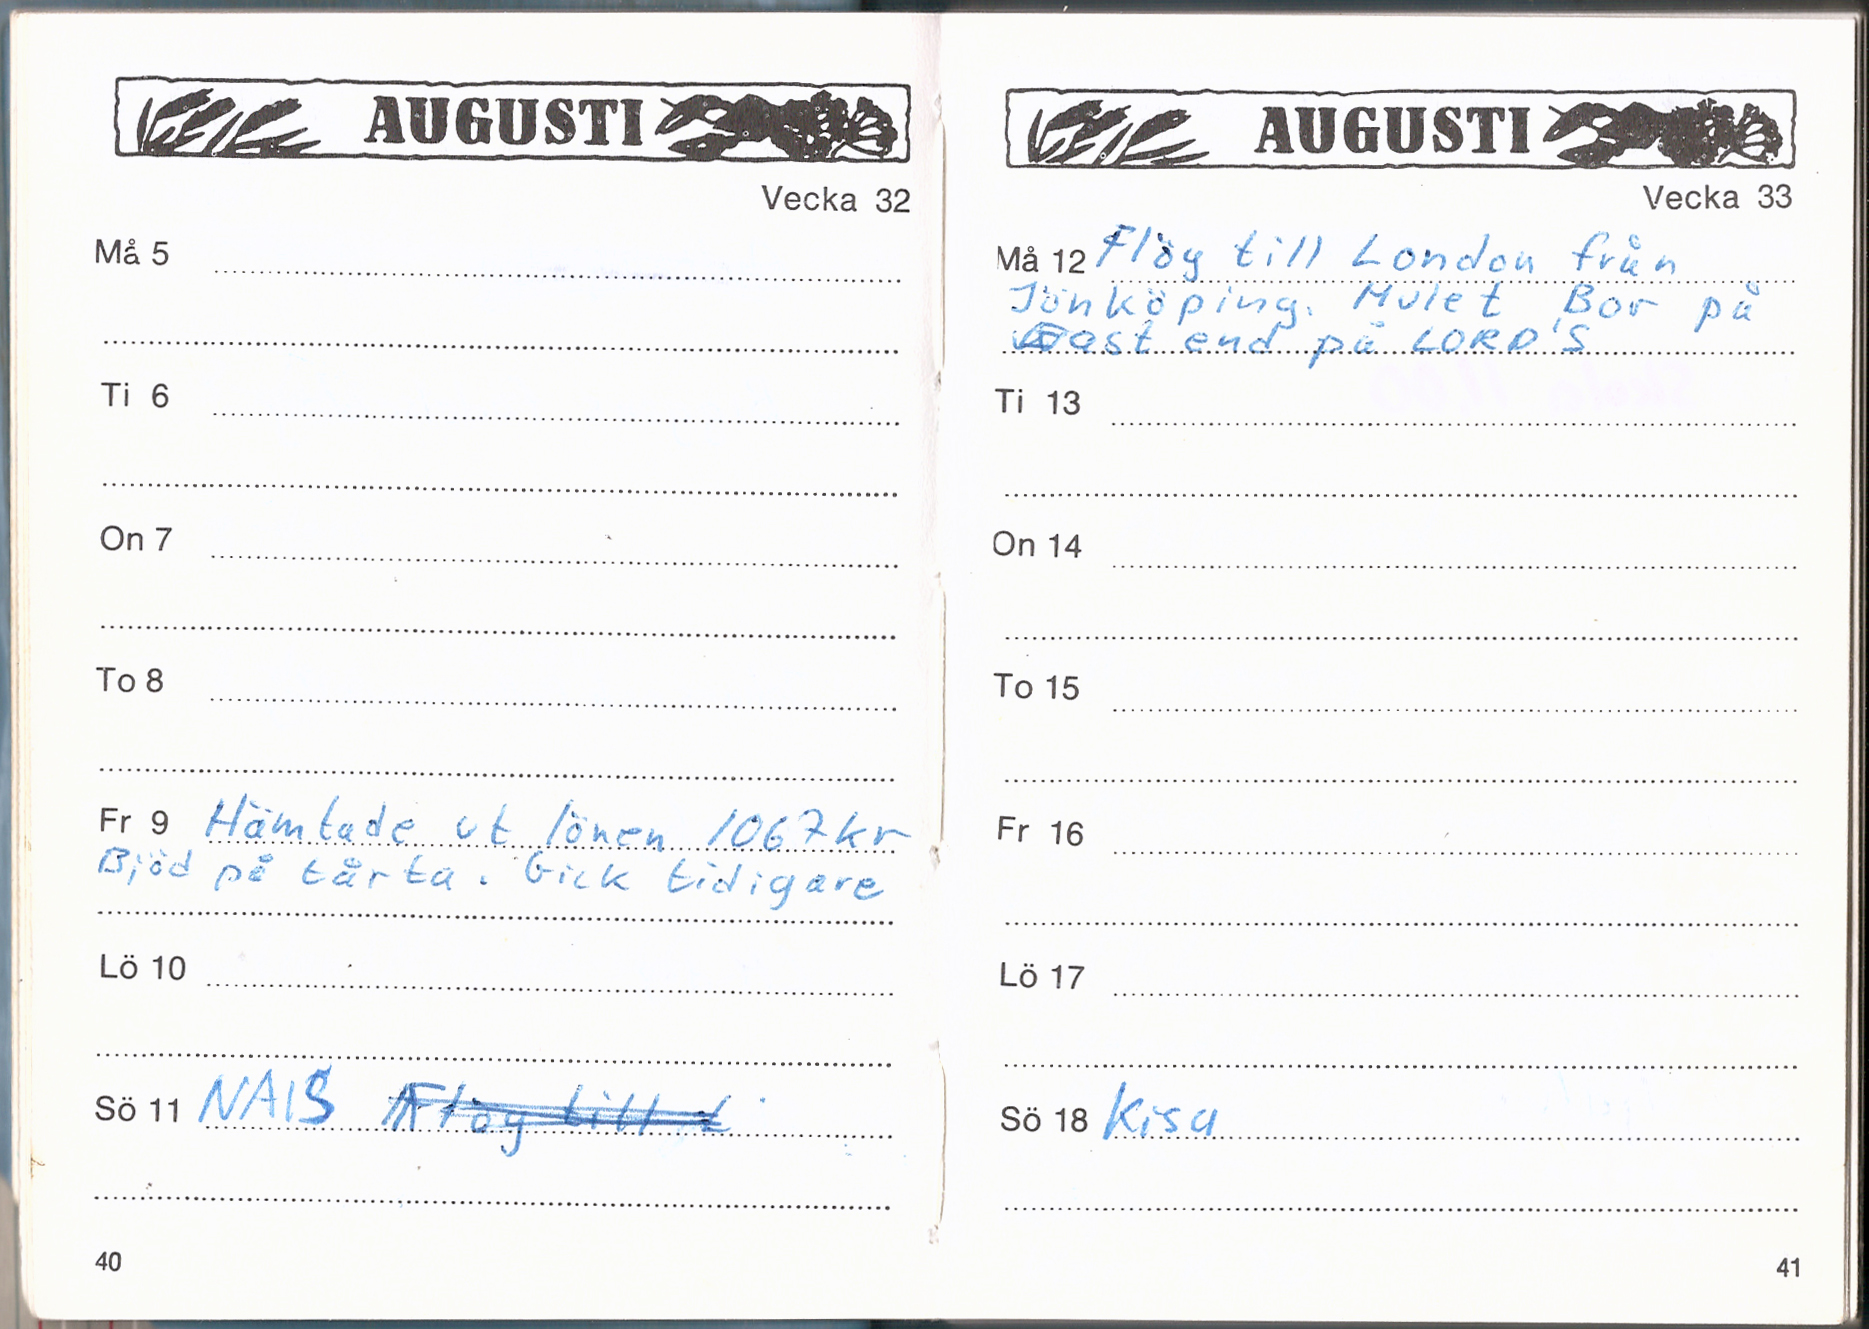 AUGUSTI
Vecka 32
Må 5
Ti 6
On 7
To 8
Fr 9 Hämtade ut lönen 1067kr
Bjöd på tårta. Gick tidigare
Lö 10
Sö 11 NAIS Flög till L
40
AUGUSTI
Vecka 33
Må 12 Flög till London från
Jönköping. Mulet Bor på
end på LORD'S
Ti 13
On 14
To 15
Fr 16
Lö 17
Sö 18 Kisa
41